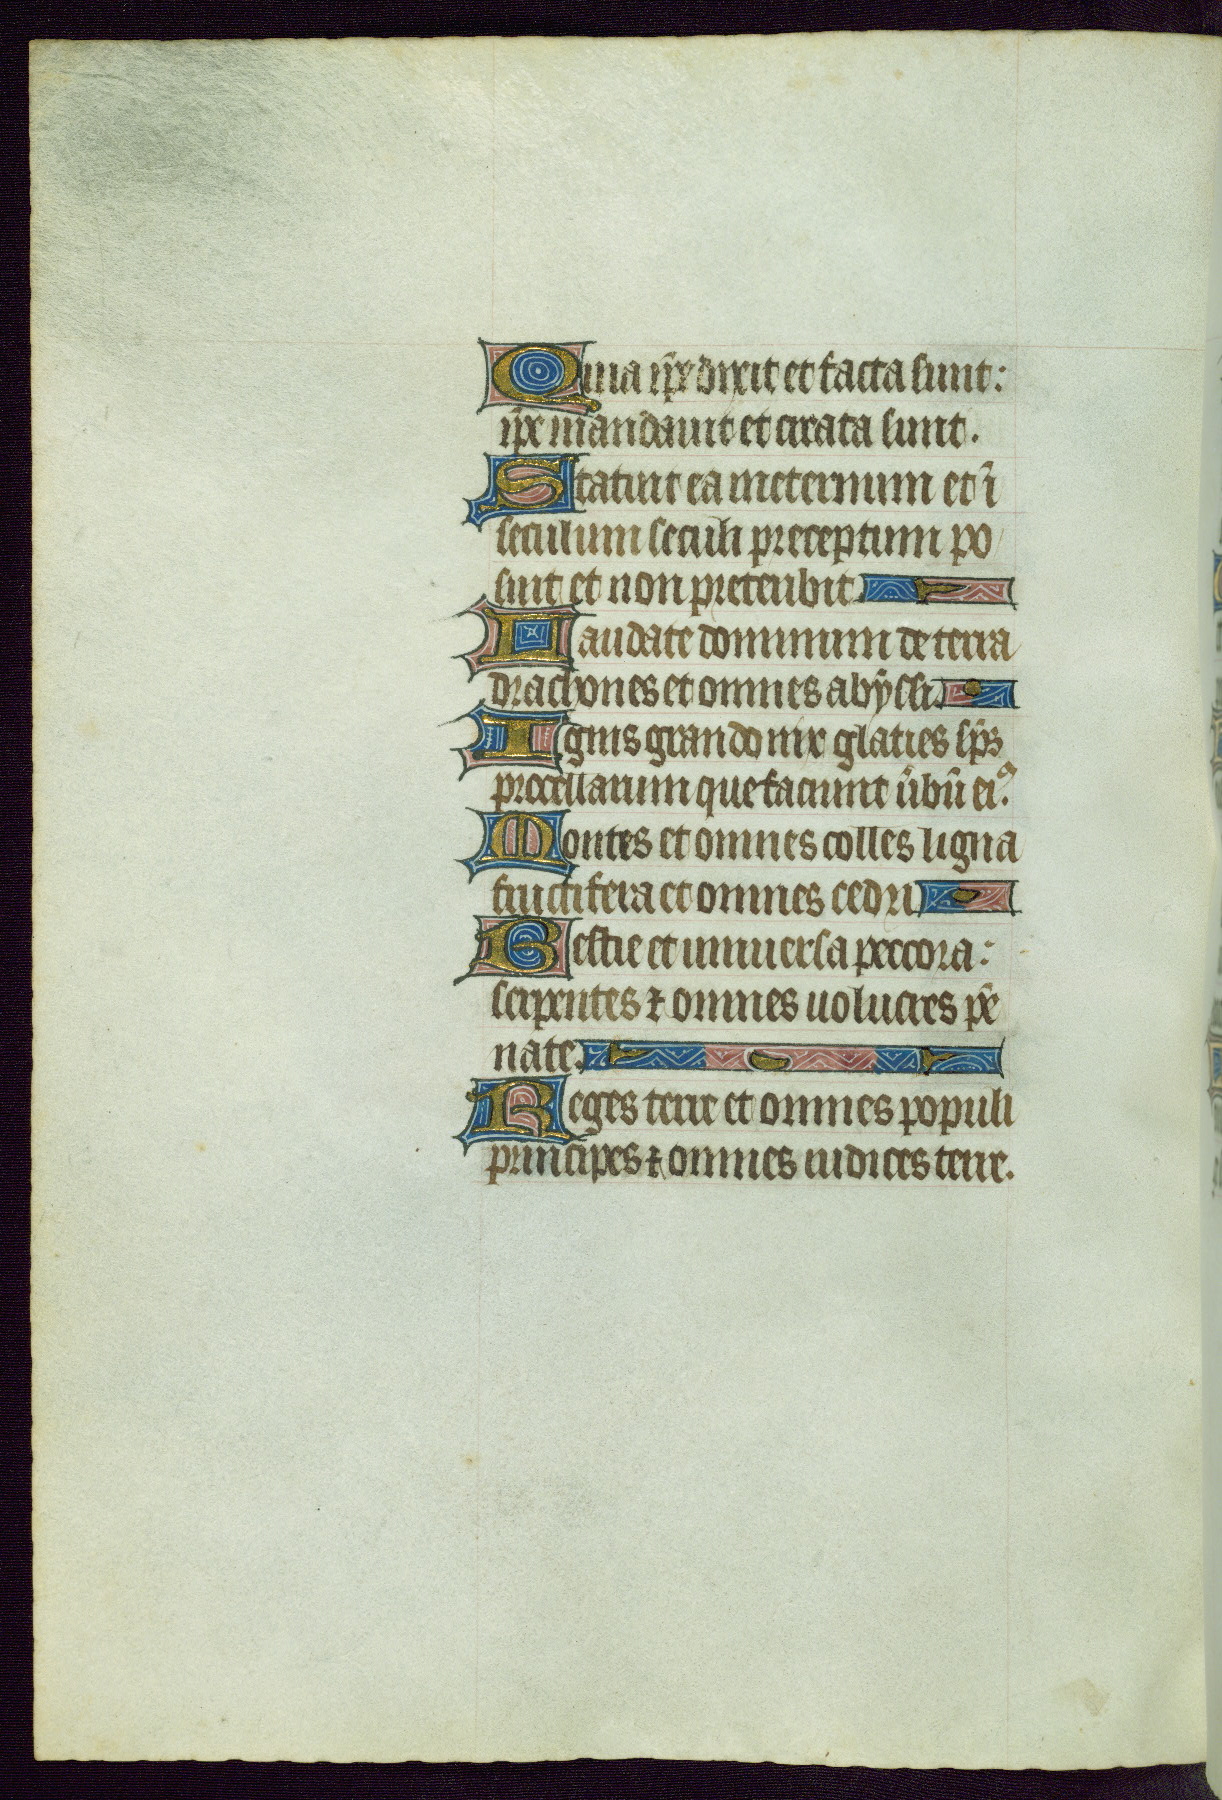 Quia ip̄e dixit et facta sunt:
ip̄e mandauit et creata sunt.
Statuit ea ineternum et ī
seculum seculi preceptum po
suit et non preteribit
Laudate dominum de terra
drachones et omnes abyssi.
Ignis grando nix glaties sp̄s
procellarum que faciunt ūbū eiꝰ.
Montes et omnes colles ligna
fructifera et omnes cedri
Bestie et uniuersa peccora:
serpentes ⁊ omnes uolucres pē
nate.
Reges terre et omnes populi
principes ⁊ omnes iudices terre.